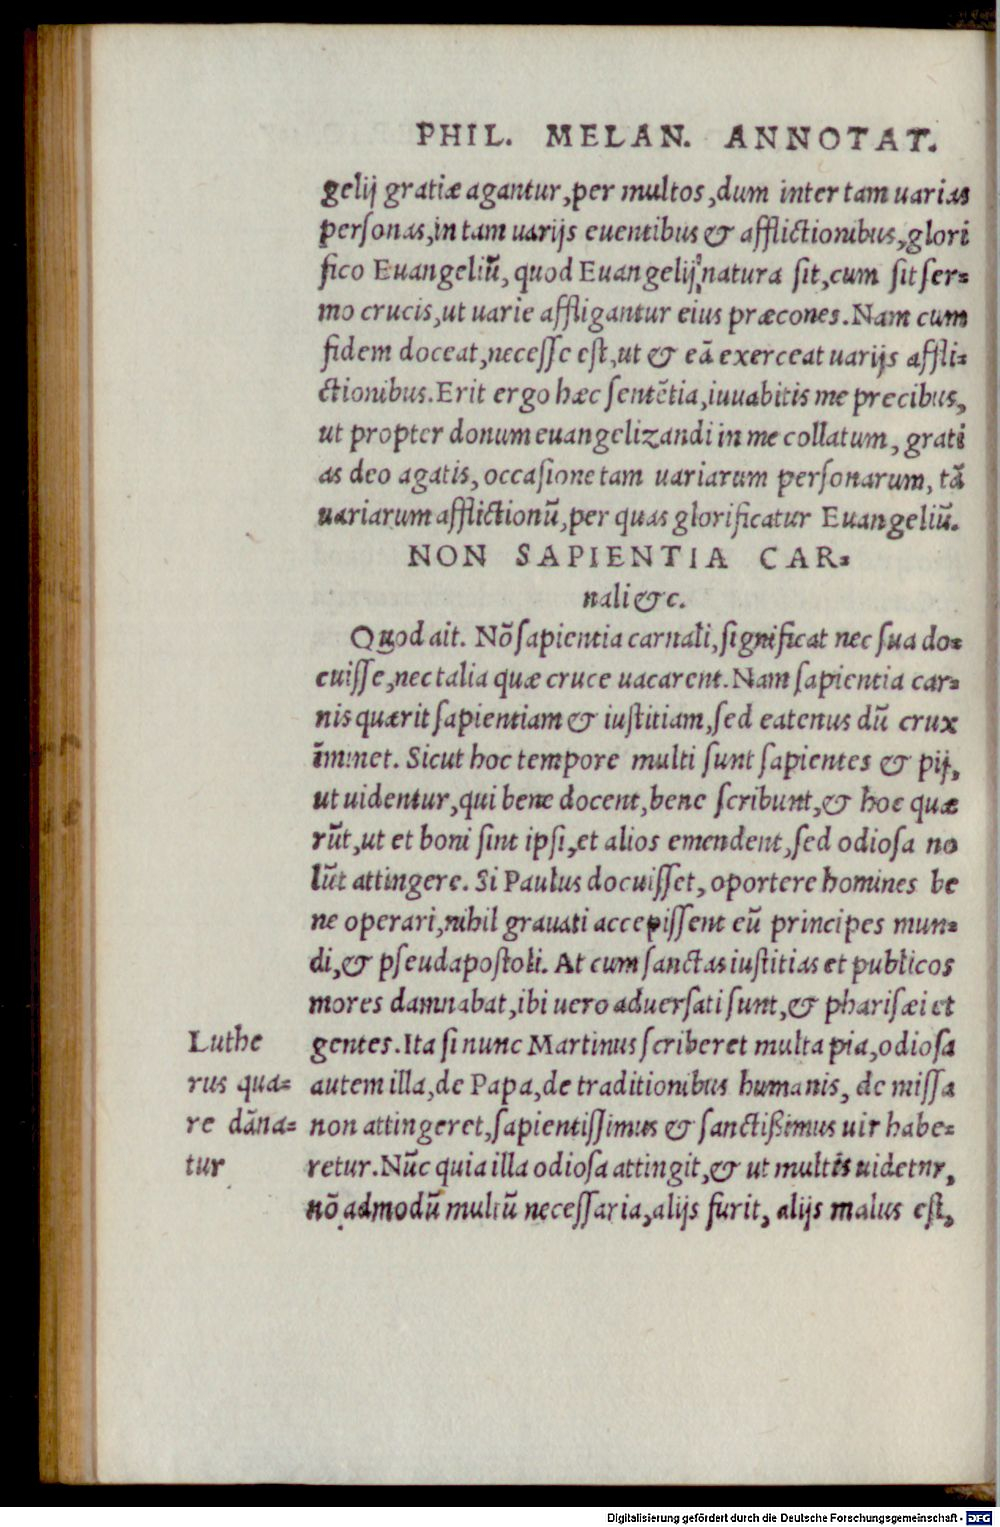 PHIL. MELAN. ANNOTAT.
gelij gratiæ agantur, per multos, dum inter tam uarias
perſonas, in tam uarijs euentibus & afflictionibus, glori
fico Euangeliũ, quod Euangelij natura ſit, cum ſit ſer-
mo crucis, ut uarie affligantur eius præcones. Nam cum
fidem doceat, neceſſe eſt, ut & eã exerceat uarijs affli-
ctionibus. Erit ergo hæc ſentẽtia, iuuabitis me precibus,
ut propter donum euangelizandi in me collatum, grati
as deo agatis, occaſione tam uariarum perſonarum, tã
uariarum afflictionũ, per quas glorificatur Euangeliũ.
NON SAPIENTIA CAR-
nali &c.
Quod ait. Nõ ſapientia carnali, ſignificat nec ſua do-
cuiſſe, nec talia quæ cruce uacarent. Nam ſapientia car-
nis quærit ſapientiam & iuſtitiam, ſed eatenus dũ crux
im̃inet. Sicut hoc tempore multi ſunt ſapientes & pij,
ut uidentur, qui bene docent, bene ſcribunt, & hoc quæ
rũt, ut et boni ſint ipſi, et alios emendent, ſed odioſa no
lũt attingere. Si Paulus docuiſſet, oportere homines be
ne operari, nihil grauati accepiſſent eũ principes mun-
di, & pſeudapoſtoli. At cum ſanctas iuſtitias et publicos
mores damnabat, ibi uero aduerſati ſunt, & phariſæi et
gentes. Ita ſi nunc Martinus ſcriberet multa pia, odioſa
autem illa, de Papa, de traditionibus humanis, de miſſa
non attingeret, ſapientiſſimus & ſanctißimus uir habe-
retur. Nũc quia illa odioſa attingit, & ut multis uidetur,
nõ admodũ multũ neceſſaria, alijs furit, alijs malus eſt,
Luthe
rus qua-
re dãna-
tur
Digitalisierung gefördert durch die Deutsche Forschungsgemeinschaft - DFG